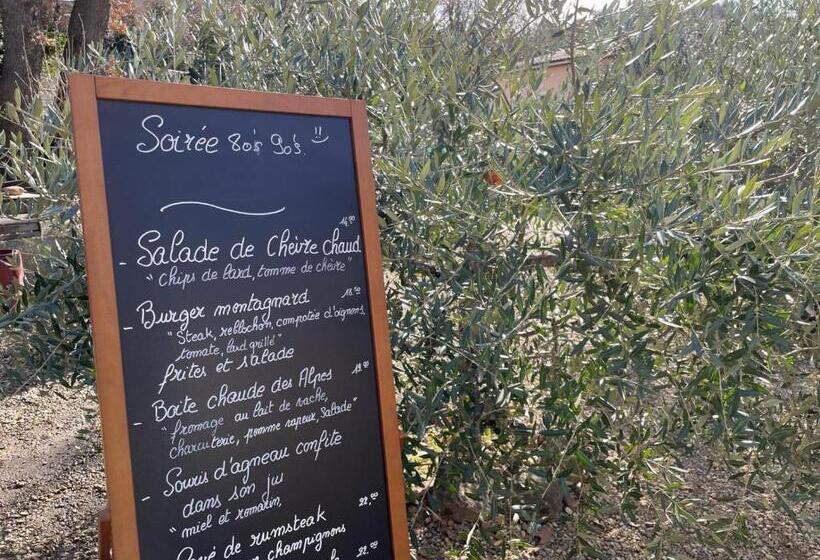 Soirée 80's 90's.
14,00
- Salade de Chèvre chaud
"chips de lard, tomme de chèvre"
- Burger montagnard 18,00
"Steak, reblochon, compotée d'oignons,
tomate, lard grillé"
frites et salade
- Boite chaude des Alpes 19,00
"fromage au lait de vache,
charcuterie, pomme vapeur, salade"
- Souris d'agneau confite
dans son jus
"miel et romarin, 22,00
Pavé de rumsteak
champignons
22,00